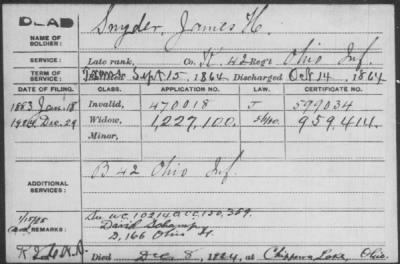 DEAD
Snyder, James H.
NAME OF SOLDIER:
SERVICE: Late rank, Co. K, 42 Reg't Ohio Inf.
TERM OF SERVICE: Sept 15, 1864 Discharged Oct 14, 1864
DATE OF FILING. CLASS. APPLICATION NO. LAW. CERTIFICATE NO.
1883 Jan. 18 Invalid, 470018 J 599034
1924 Dec. 29 Widow, 1,227,100. 959,414.
Minor,
B 42 Ohio Inf.
ADDITIONAL SERVICES:
REMARKS:
David Schamp
D, 166 Ohio
Died Dec 8, 1924, at Chippewa Lake, Ohio.